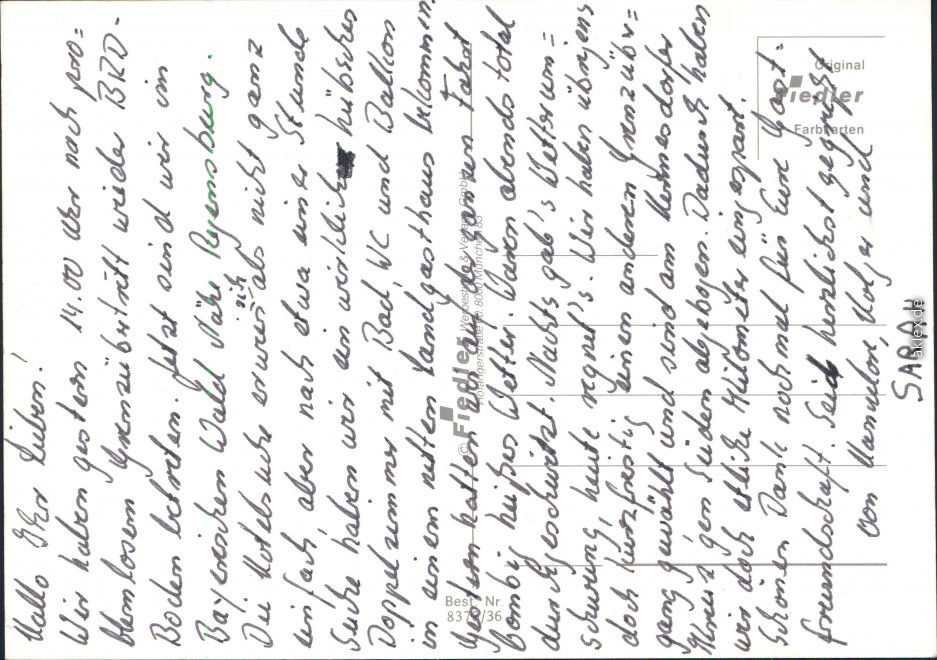 Hallo Ihr Lieben!
Wir haben gestern 14.00 Uhr nach pro=
blemlosem Grenzübertritt wieder BRD-
Boden betreten. Jetzt sind wir im
Bayerischen Wald Nähe Regensburg.
Die Hotelsuche erwies sich als nicht ganz
einfach, aber nach etwa einer Stunde
Suche haben wir ein wirklich hübsches
Doppelzimmer mit Bad, WC und Balkon
in einem netten Landgasthaus bekommen.
Gestern hatten wir auf der ganzen Fahrt
bombig heißes Wetter. Waren abends total
durchgeschwitzt. Nachts gab's Wetterum=
schwung, heute regnet's. Wir haben übrigens
doch kurzfristig einen anderen Grenzüber=
gang gewählt und sind am Hermsdorfer
Kreuz gen Süden abgebogen. Dadurch haben
wir doch etliche Kilometer eingespart.
Schönen Dank nochmal für Eure Gast=
freundschaft! Seid herzlichst gegrüßt
von Manuela, Holger und
SARAH
Original
Fiedler
Farbkarten
© Fiedler Werbestudio & Verlag GmbH
8000 München 83
Best. Nr.
8377/36
aklex.de